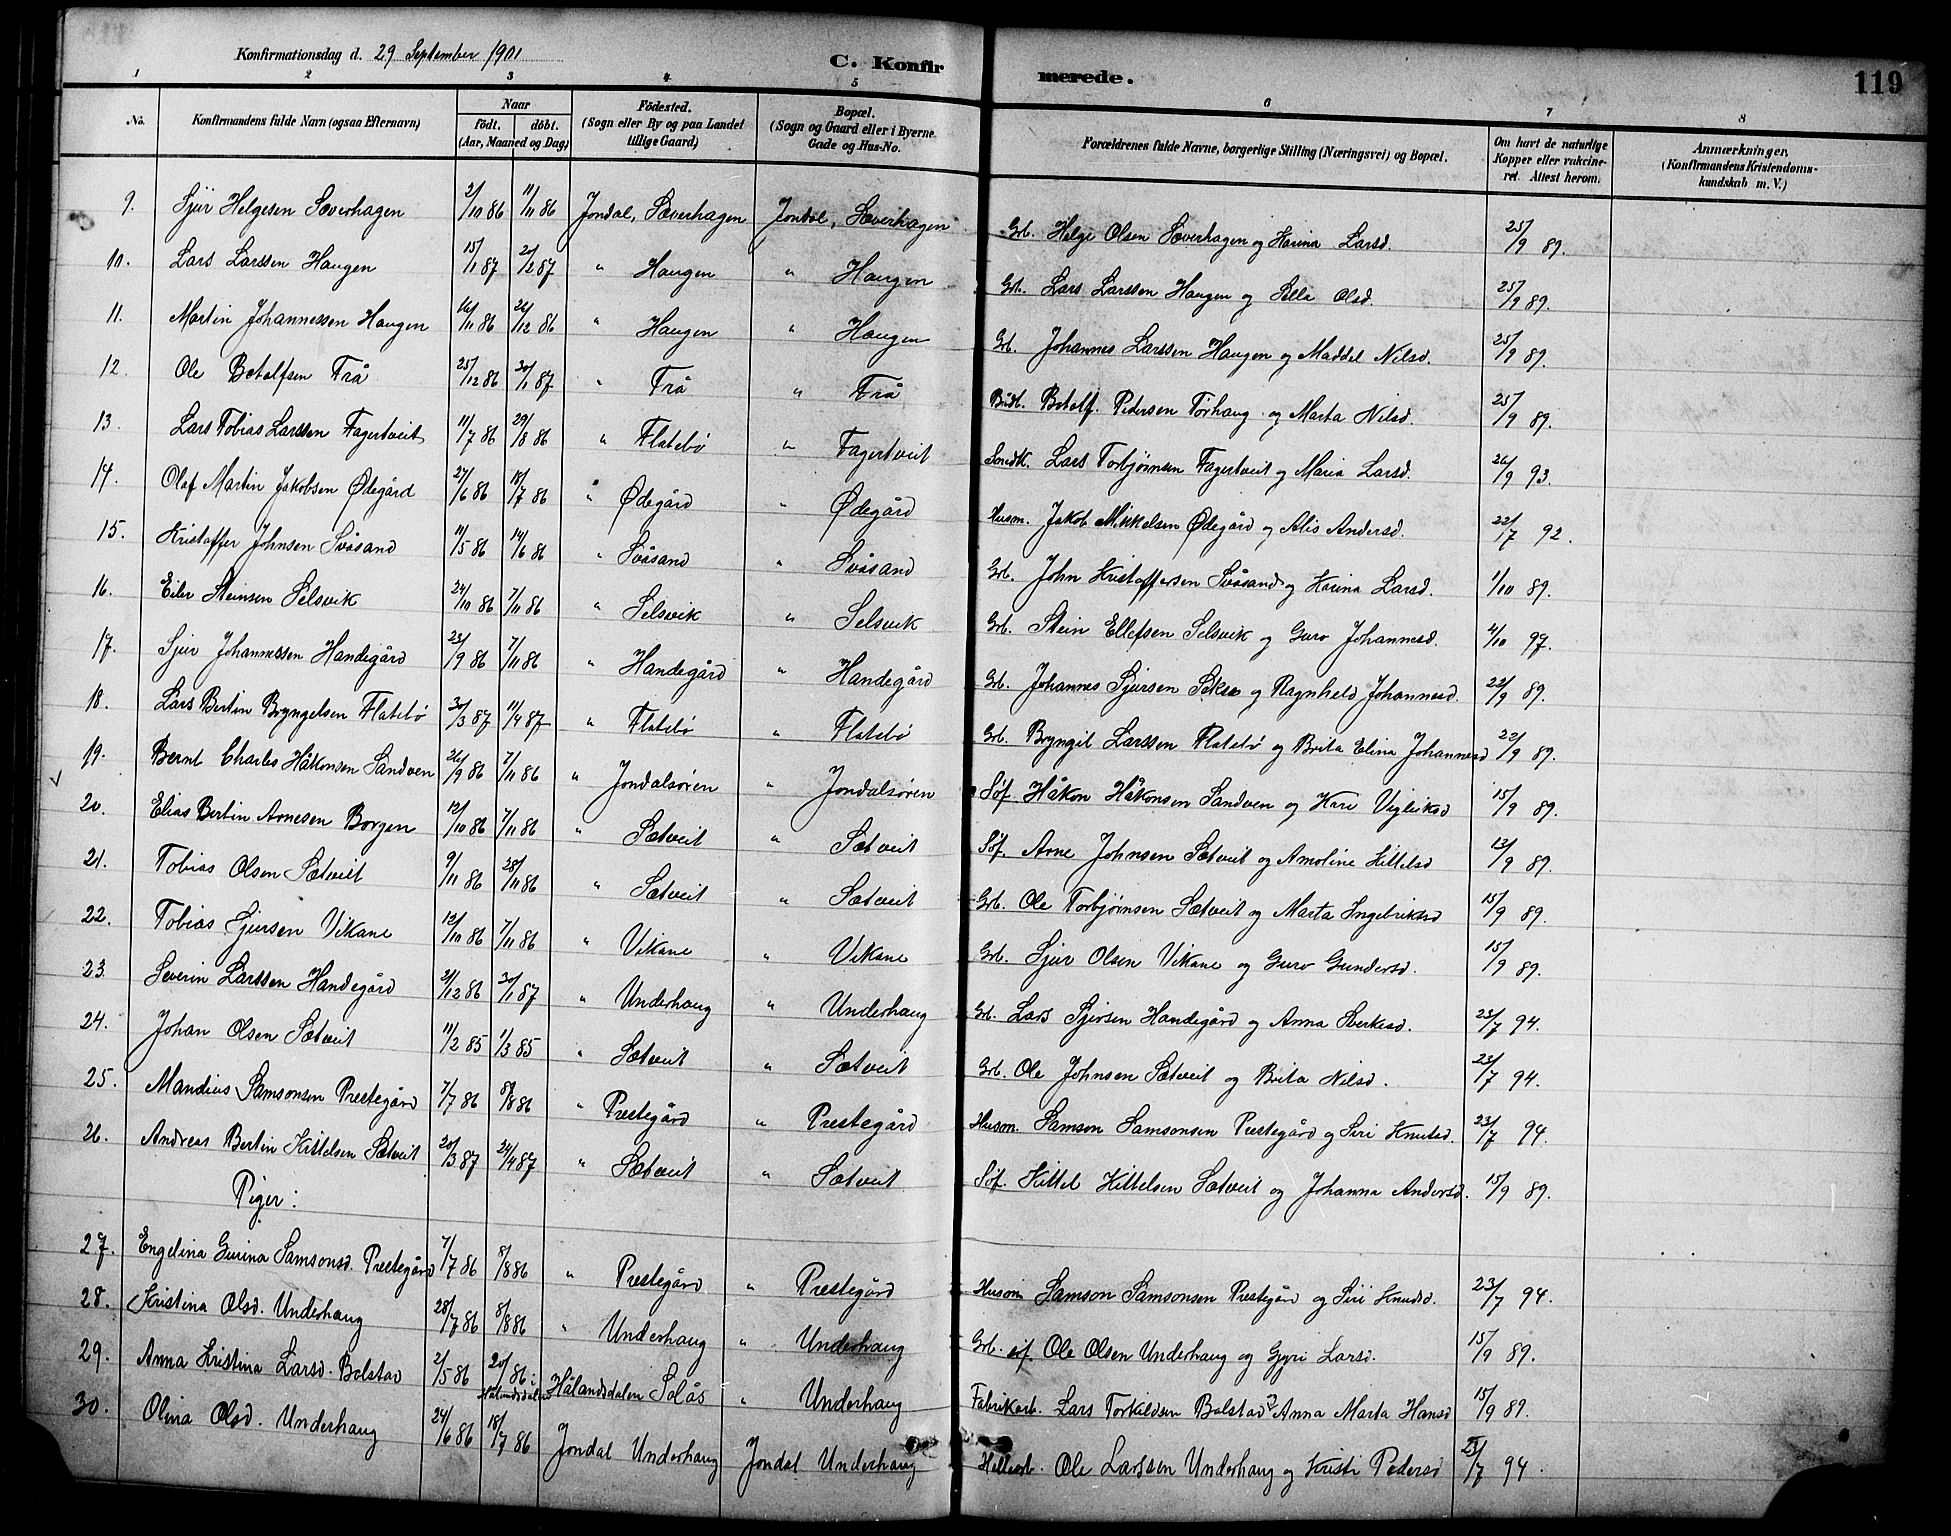 Konfirmationsdag d. 29 September 1901
C. Konfirmerede.
119
1 2 3 4 5 6 7 8
No. | Konfirmandens fulde Navn (ogsaa Efternavn) | Naar født. døbt. (Aar, Maaned og Dag) | Fødested. (Sogn eller By og paa Landet tillige Gaard) | Bopæl. (Sogn og Gaard eller i Byerne Gade og Hus-No. | Forældrenes fulde Navne, borgerlige Stilling (Næringsvei) og Bopæl. | Om havt de naturlige Kopper eller vakcineret. Attest herom. | Anmærkninger. (Konfirmandens Kristendomskundskab m. V.)
9. Sjur Helgesen Sæverhagen 2/10 86 11/11 86 Jondal, Sæverhagen Jondal, Sæverhagen Grb. Helge Olsen Sæverhagen og Karina Larsd. 25/9 89.
10. Lars Larssen Haugen 15/1 87 20/2 87 " Haugen " Haugen Grb. Lars Larssen Haugen og Olsd. 25/9 89.
11. Martin Johannessen Haugen 16/11 86 26/12 86 " Haugen " Haugen Grb. Johannes Larssen Haugen og Maddel Nilsd. 25/9 89.
12. Ole Botolfsen Trå 25/12 86 30/1 87 " Trå " Trå Botolf. Pedersen Torhaug og Marta Nilsd. 25/9 89.
13. Lars Tobias Larssen Fagertveit 11/7 86 29/8 86 " Flatebø " Fagertveit Smedk. Lars Torbjørnsen Fagertveit og Maria Larsd. 26/9 93.
14. Olaf Martin Jakobsen Ødegård 27/6 86 18/7 86 " Ødegård " Ødegård Husm. Jakob Mikkelsen Ødegård og Alis Andersd. 22/7 92.
15. Kristoffer Johnsen Svåsand 11/5 86 14/6 86 " Svåsand " Svåsand Grb. John Kristoffersen Svåsand og Karina Larsd. 1/10 89.
16. Eiler Steinsen Selsvik 24/10 86 7/11 86 " Selsvik " Selsvik Grb. Stein Ellefsen Selsvik og Guro Johannesd. 4/10 97.
17. Sjur Johannessen Handegård 23/9 86 7/11 86 " Handegård " Handegård Grb. Johannes Sjursen og Ragnhild Johannesd. 22/9 89.
18. Lars Bertin Bryngelsen Flatebø 3/3 87 11/4 87 " Flatebø " Flatebø Grb. Bryngel Larssen Flatebø og Brita Elina Johannesd 22/9 89.
19. Bernt Charles Håkonsen Sandven 26/9 86 7/11 86 " Jondalsøren " Jondalsøren Søf. Håkon Håkonsen Sandven og Kari Vigleiksd 15/9 89.
20. Elias Bertin Arnesen Borgen 12/10 86 7/11 86 " Sætveit " Sætveit Søf. Arne Johnsen Sætveit og Amoline Kittelsd 13/9 89.
21. Tobias Olsen Sætveit 9/11 86 28/11 86 " Sætveit " Sætveit Grb. Ole Torbjørnsen Sætveit og Marta Ingebriktsd 15/9 89.
22. Tobias Sjursen Vikane 12/10 86 7/11 86 " Vikane " Vikane Grb. Sjur Olsen Vikane og Guro Gundersd. 15/9 89.
23. Severin Larssen Handegård 21/12 86 30/1 87 " Underhaug " Underhaug Grb. Lars Sjursen Handegård og Anna 23/7 94.
24. Johan Olsen Sætveit 11/2 85 1/3 85 " Sætveit " Sætveit Grb. Ole Johnsen Sætveit og Brita Nilsd. 23/7 94.
25. Mandius Samsonsen Prestegård 7/7 86 8/8 86 " Prestegård " Prestegård Husm. Samson Samsonsen Prestegård og Siri Knutsd. 23/7 94.
26. Andreas Bertin Kittelsen Sætveit 20/3 87 24/4 87 " Sætveit " Sætveit Søf. Kittel Kittelsen Sætveit og Johanna Andersd. 15/9 89.
Piger:
27. Engelina Gurina Samsonsd. Prestegård 7/7 86 8/8 86 " Prestegård " Prestegård Husm Samson Samsonsen Prestegård og Siri Knudsd. 23/7 94.
28. Kristina Olsd. Underhaug 28/7 86 8/8 86 " Underhaug " Underhaug Grb. Ole Olsen Underhaug og Gyri Larsd. 15/9 89.
29. Anna Kristina Larsd. Bolstad 2/5 86 20/ 86 i Hålandsdalen Hålandsdalen Solås " Underhaug Fabrikarb. Lars Torkildsen Bolstad og Anna Marta Hansd 15/9 89.
30. Olina Olsd. Underhaug 24/6 86 18/7 86 Jondal Underhaug Jondal Underhaug Ole Larssen Underhaug og Kristi Pedersd 23/7 94.